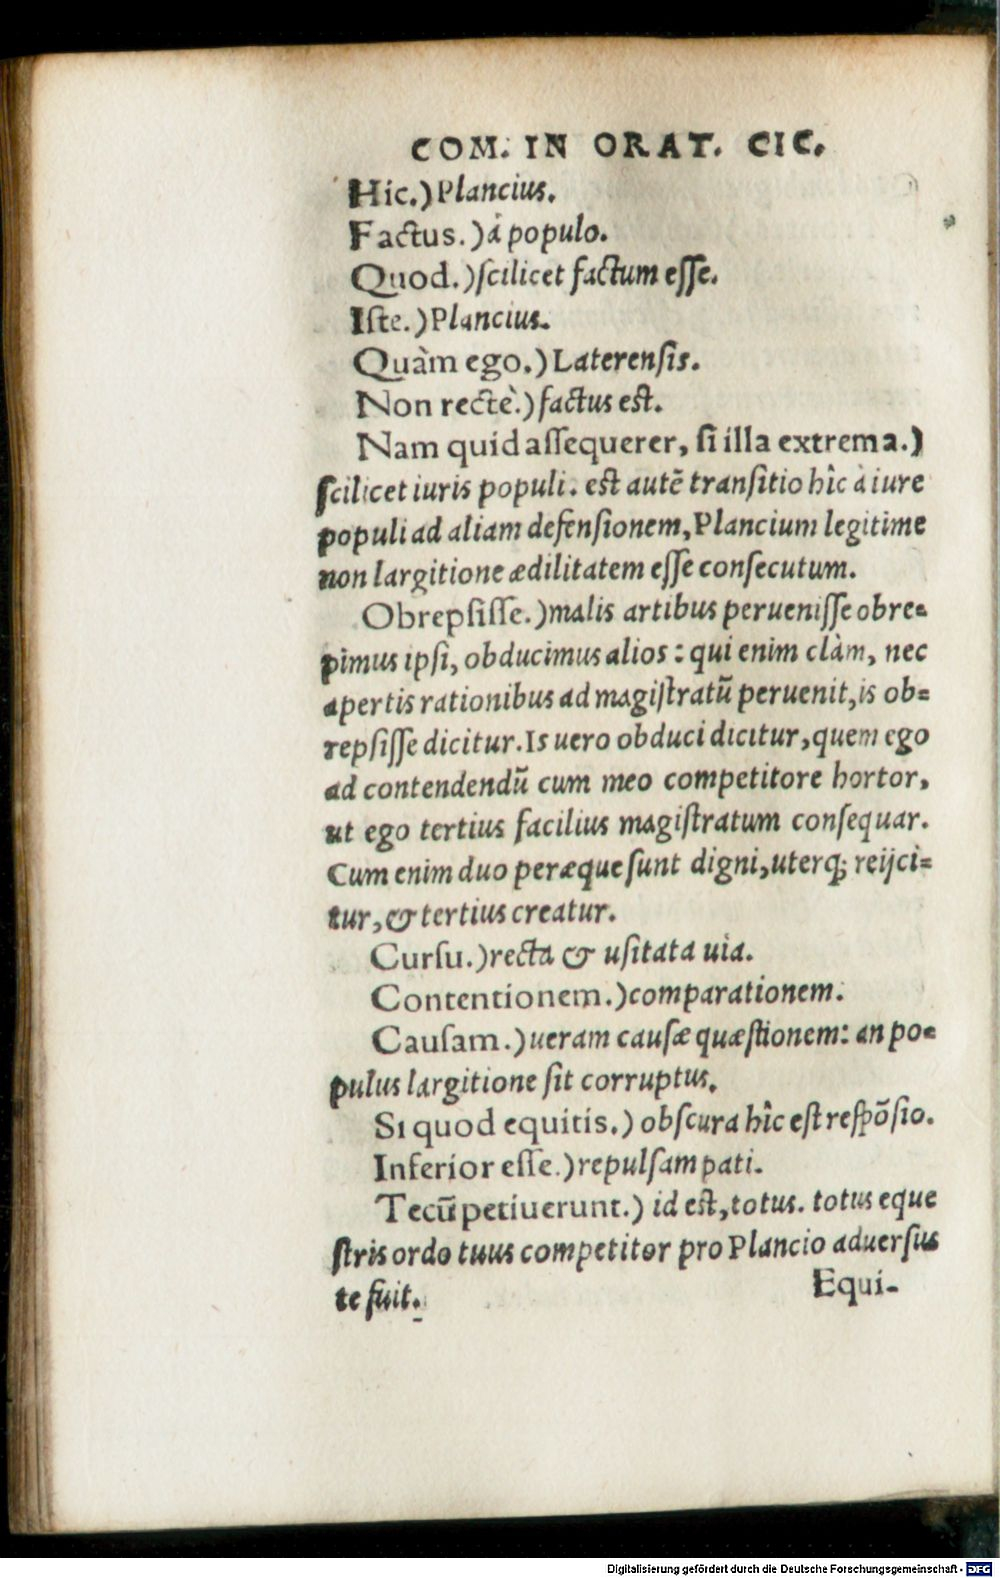 COM. IN ORAT. CIC.
Hic.) Plancius.
Factus.) à populo.
Quod.) scilicet factum esse.
Iste.) Plancius.
Quàm ego.) Laterensis.
Non rectè.) factus est.
Nam quid assequerer, si illa extrema.)
scilicet iuris populi. est autē transitio hîc à iure
populi ad aliam defensionem, Plancium legitime
non largitione ædilitatem esse consecutum.
Obrepsisse.) malis artibus peruenisse obre=
pimus ipsi, obducimus alios: qui enim clàm, nec
apertis rationibus ad magistratū peruenit, is ob=
repsisse dicitur. Is uero obduci dicitur, quem ego
ad contendendū cum meo competitore hortor,
ut ego tertius facilius magistratum consequar.
Cum enim duo peræque sunt digni, uterq; reijci=
tur, & tertius creatur.
Cursu.) recta & usitata uia.
Contentionem.) comparationem.
Causam.) ueram causæ quæstionem: an po=
pulus largitione sit corruptus.
Si quod equitis.) obscura hîc est respōsio.
Inferior esse.) repulsam pati.
Tecū petiuerunt.) id est, totus. totus eque
stris ordo tuus competitor pro Plancio aduersus
te fuit.
Equi-
Digitalisierung gefördert durch die Deutsche Forschungsgemeinschaft - DFG